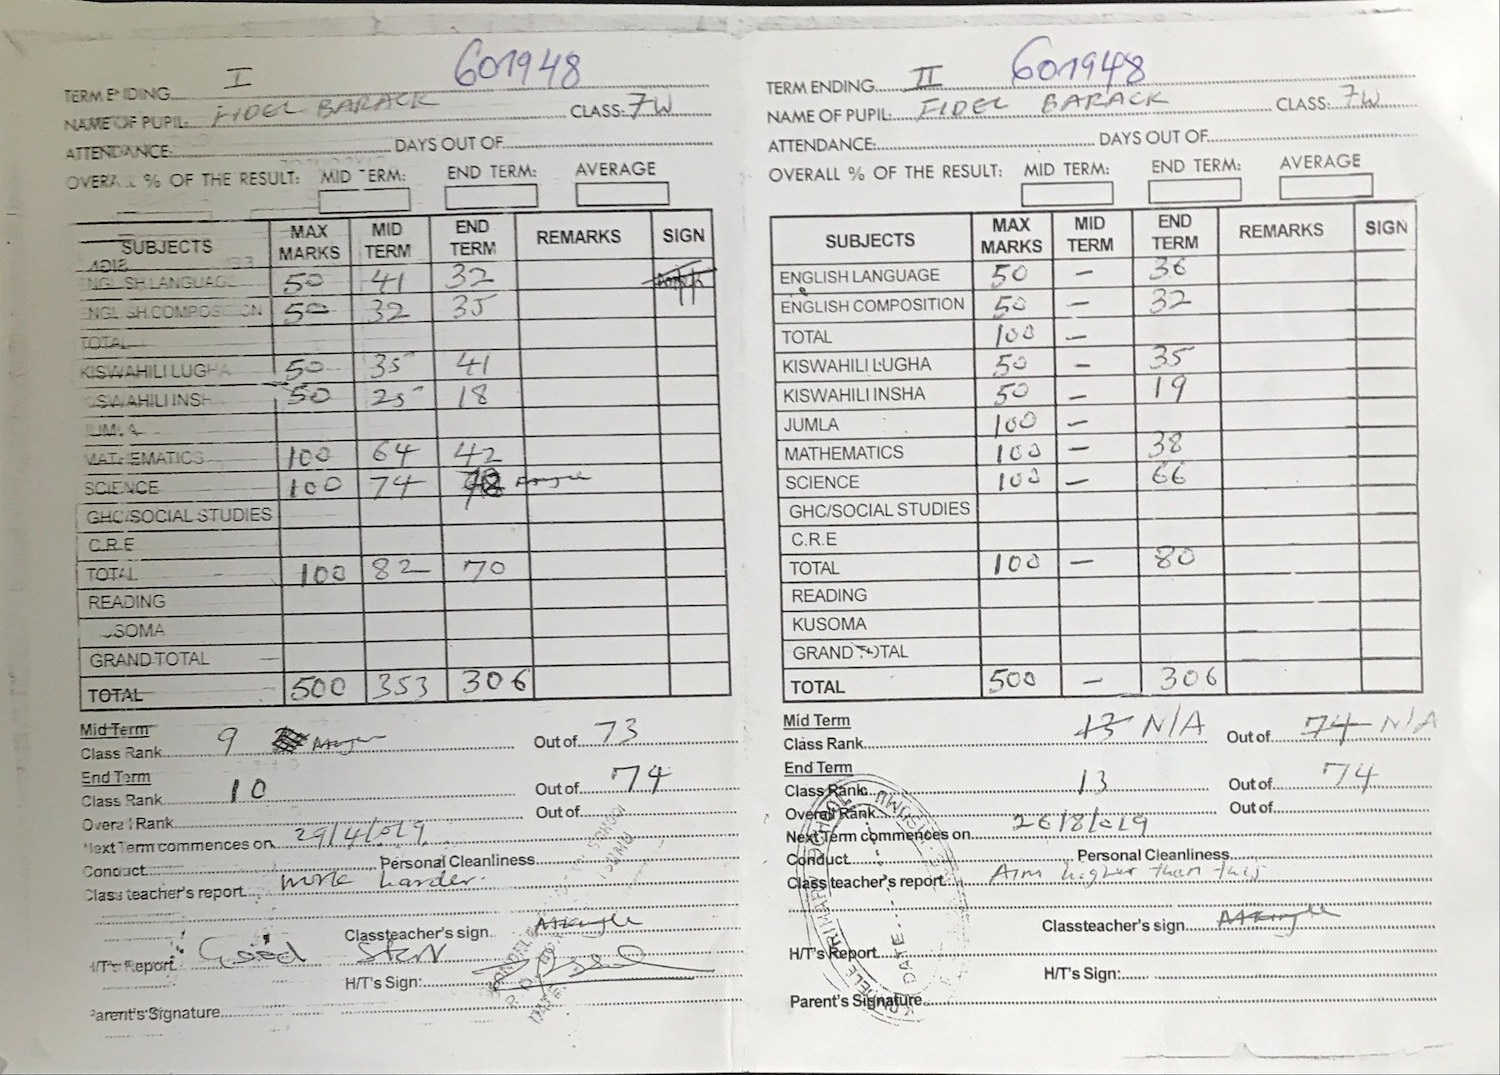 TERM ENDING I 601948
NAME OF PUPIL: FIDEL BARACK CLASS: 7W
ATTENDANCE: DAYS OUT OF
OVERALL % OF THE RESULT: MID TERM: END TERM: AVERAGE
SUBJECTS MAX MARKS MID TERM END TERM REMARKS SIGN
ENGLISH LANGUAGE 50 41 32
ENGLISH COMPOSITION 50 32 35
TOTAL
KISWAHILI LUGHA 50 35 41
KISWAHILI INSHA 50 25 18
JUMLA
MATHEMATICS 100 64 42
SCIENCE 100 74
GHC/SOCIAL STUDIES
C.R.E
TOTAL 100 82 70
READING
KUSOMA
GRAND TOTAL
TOTAL 500 353 306
Mid Term
Class Rank 9 Out of 73
End Term
Class Rank 10 Out of 74
Overall Rank Out of
Next Term commences on 29/4/019
Conduct Personal Cleanliness
Class teacher's report work harder.
Classteacher's sign
H/T's Report Good
H/T's Sign:
Parent's Signature
TERM ENDING II 601948
NAME OF PUPIL: FIDEL BARACK CLASS: 7W
ATTENDANCE: DAYS OUT OF
OVERALL % OF THE RESULT: MID TERM: END TERM: AVERAGE
SUBJECTS MAX MARKS MID TERM END TERM REMARKS SIGN
ENGLISH LANGUAGE 50 – 36
ENGLISH COMPOSITION 50 – 32
TOTAL 100 –
KISWAHILI LUGHA 50 – 35
KISWAHILI INSHA 50 – 19
JUMLA 100 –
MATHEMATICS 100 – 38
SCIENCE 100 – 66
GHC/SOCIAL STUDIES
C.R.E
TOTAL 100 – 80
READING
KUSOMA
GRAND TOTAL
TOTAL 500 – 306
Mid Term
Class Rank 13 N/A Out of 74 N/A
End Term
Class Rank 13 Out of 74
Overall Rank Out of
Next Term commences on 26/8/019
Conduct Personal Cleanliness
Class teacher's report Aim higher than this
Classteacher's sign
H/T's Report
H/T's Sign:
Parent's Signature
DATE